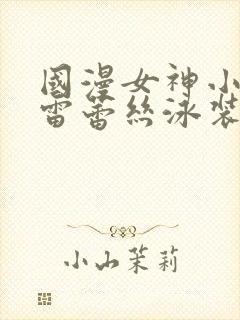 國漫女神小
雷蕾絲泳裝
小山茉莉